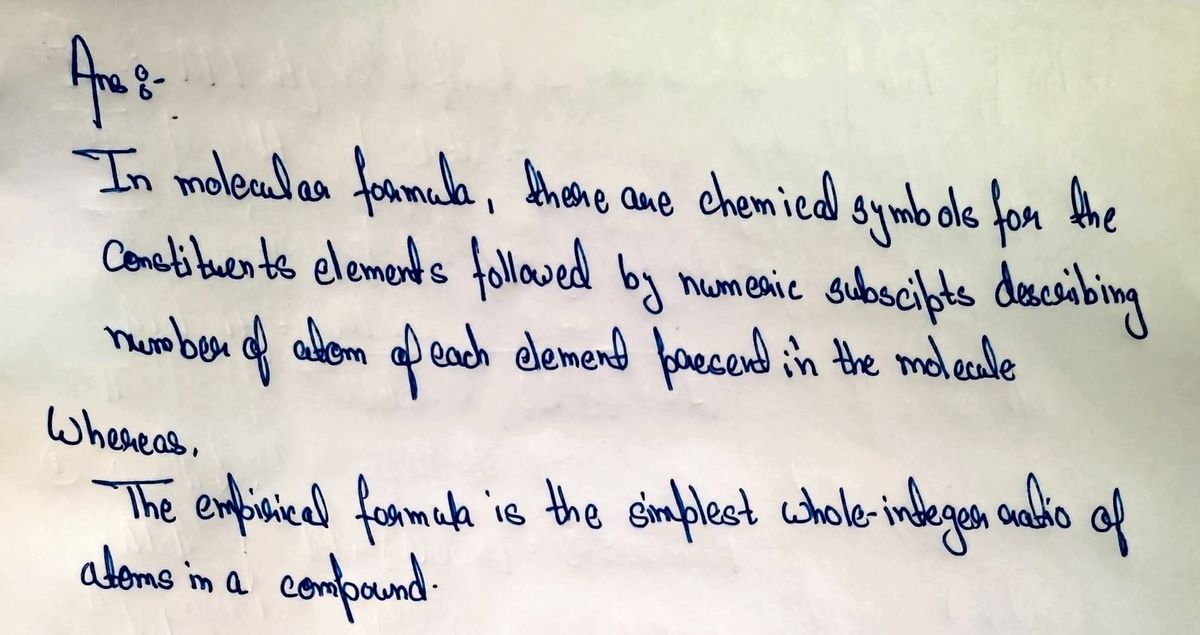 Ans :-
In molecular formula, there are chemical symbols for the
Constituents elements followed by numeric subscipts describing
number of atom of each element present in the molecule
Whereas,
The empirical formula is the simplest whole-integer ratio of
atoms in a compound.